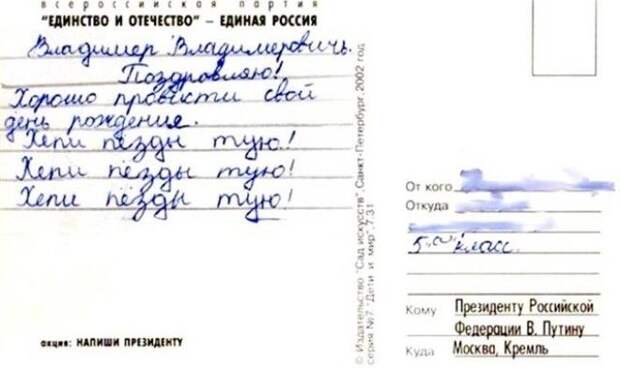 всероссийская партия
"ЕДИНСТВО И ОТЕЧЕСТВО" – ЕДИНАЯ РОССИЯ
Владимер Владимеровичь.
Поздровляю!
Хорошо провисти свой
день рождения.
Хепи пёзды тую!
Хепи пёзды тую!
Хепи пёзды тую!
акция: НАПИШИ ПРЕЗИДЕНТУ
© Издательство "Сад искусств", Санкт-Петербург, 2002 год.
серия №7 "Дети и мир", 7.31
От кого
Откуда
5 "а" класс.
Кому Президенту Российской
Федерации В. Путину
Куда Москва, Кремль